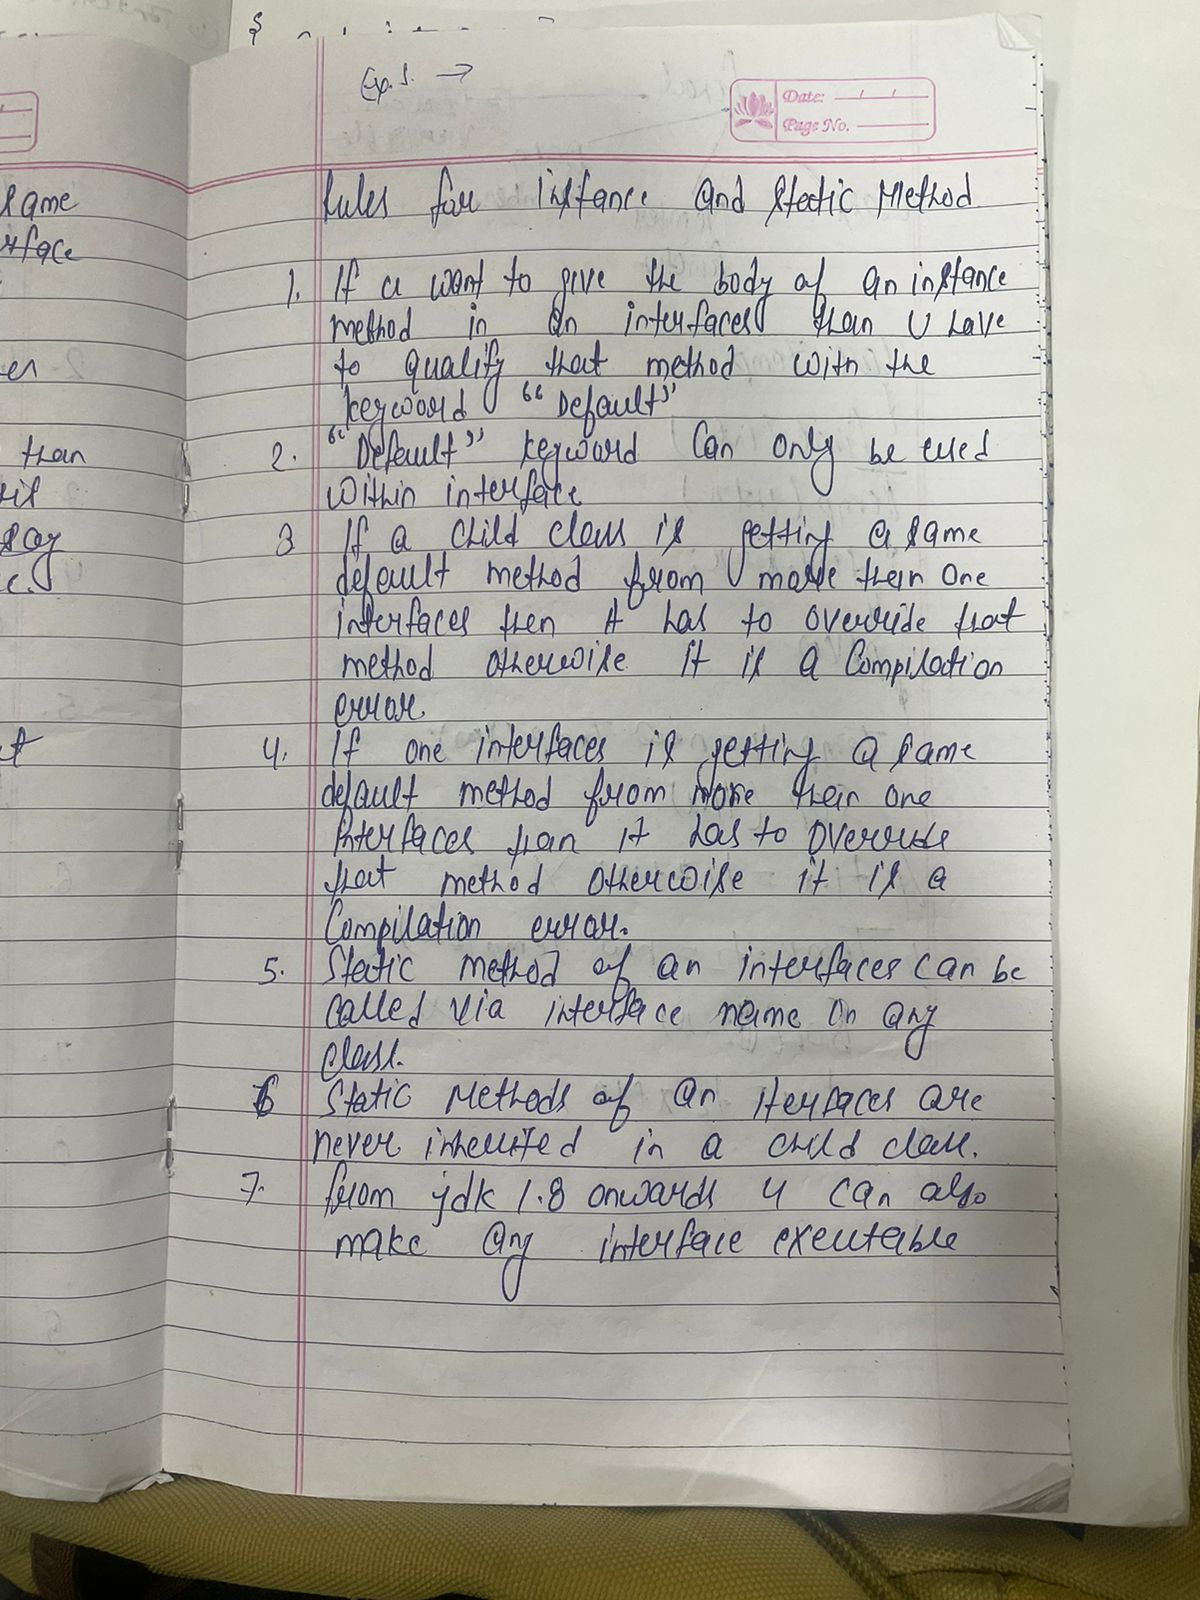 Exp. 1. →
Date:
Page No.
Rules for Instance and Static Method
1. If u want to give the body of an instance
method in an interfaces than U have
to qualify that method with the
keyword "Default"
2. "Default" keyword can only be used
within interface
3 If a child class is getting a same
default method from more than one
interfaces then it has to override that
method otherwise it is a Compilation
error.
4. If one interfaces is getting a same
default method from more than one
interfaces than it has to override
that method otherwise it is a
Compilation error.
5. Static method of an interfaces can be
called via interface name in any
class.
6 Static Methods of an iterfaces are
never inherited in a child class.
7. from jdk 1.8 onwards u can also
make any interface exeutable
same
rface
en
than
say